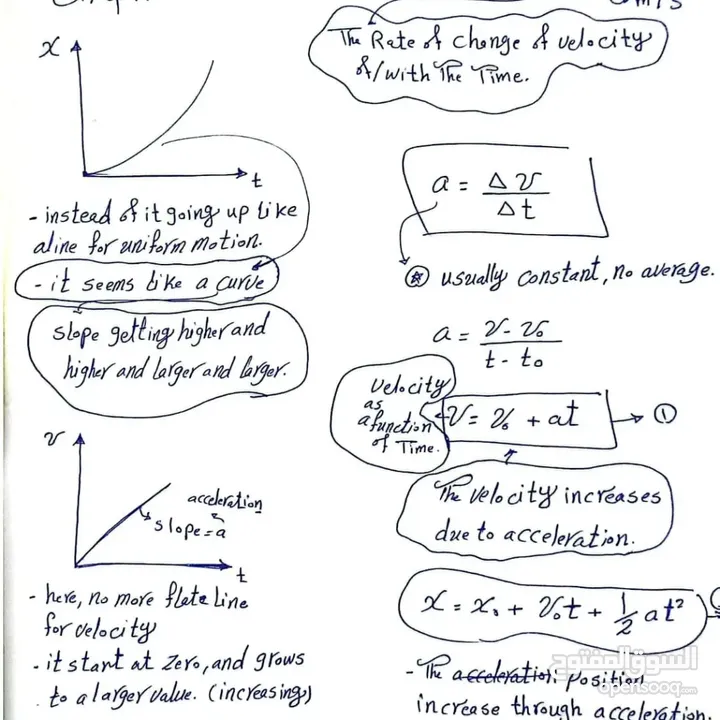 x
t
- instead of it going up like
a line for uniform motion.
- it seems like a curve
slope getting higher and
higher and larger and larger.
v
acceleration
slope = a
t
- here, no more flate line
for velocity
- it start at zero, and grows
to a larger value. (increasing)
The Rate of change of velocity
of/with The Time.
a = Δv/Δt
⊛ usually constant, no average.
a = v - v₀ / t - t₀
velocity
as
a function
of Time.
v = v₀ + at → ①
The velocity increases
due to acceleration.
x = x₀ + v₀t + ½ at²
- The acceleration position
increase through acceleration.
السوق المفتوح
opensooq.com